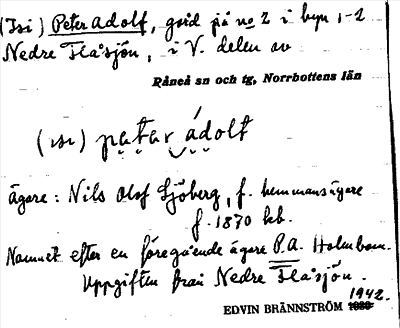 (Isi) Peter Adolf, gård på no 2 i byn 1-2
Nedre Flåsjön, i V. delen av
Råneå sn och tg, Norrbottens län
(ısı) pa̤ta̤r ádo̤lt
ägare: Nils Olof Sjöberg, f. hemmansägare
f. 1870 kb.
Namnet efter en föregående ägare P.A. Holmbom.
Uppgiften från Nedre Flåsjön.
1942.
EDVIN BRÄNNSTRÖM